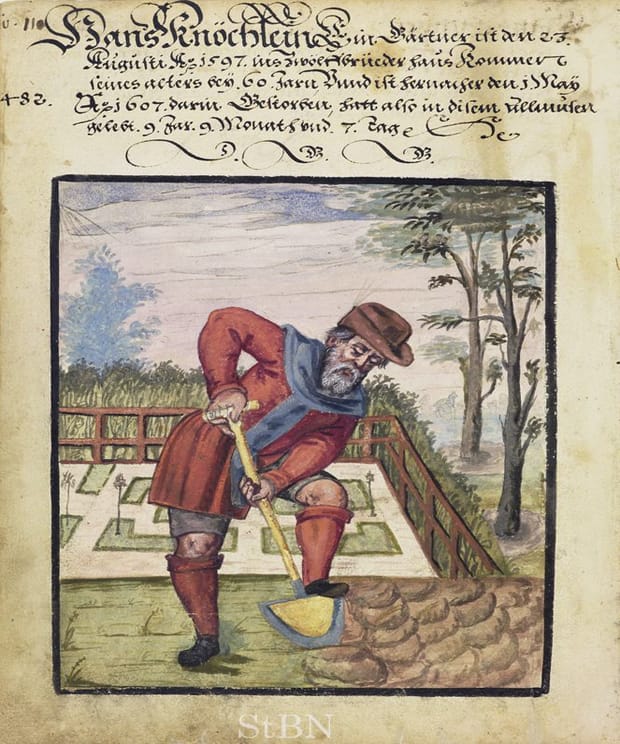 110
Hans Knöchlein Ein Gärtner ist den 23.
Augusti Aº 1597. ins zwölfbrüeder haus Kommen
seines alters bey. 60. Jarn Vnnd ist hernacher den 1 May
482.
Aº 1607. darin Gestorben, hatt also in disem Allmusen
gelebt. 9. Jar. 9. Monat vnd. 7. Tag
D. G. G.
StBN